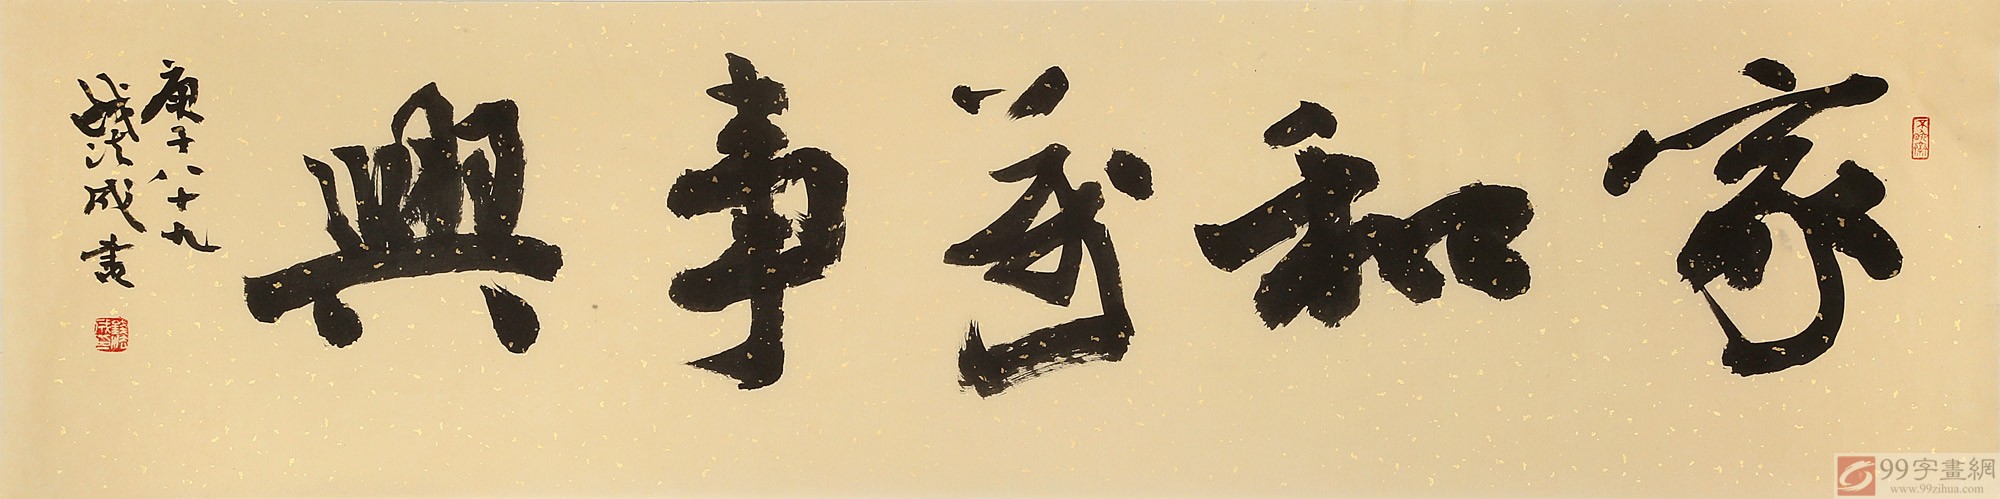 家和萬事興
庚子八十九
錢法成書
99字畫網
www.99zihua.com